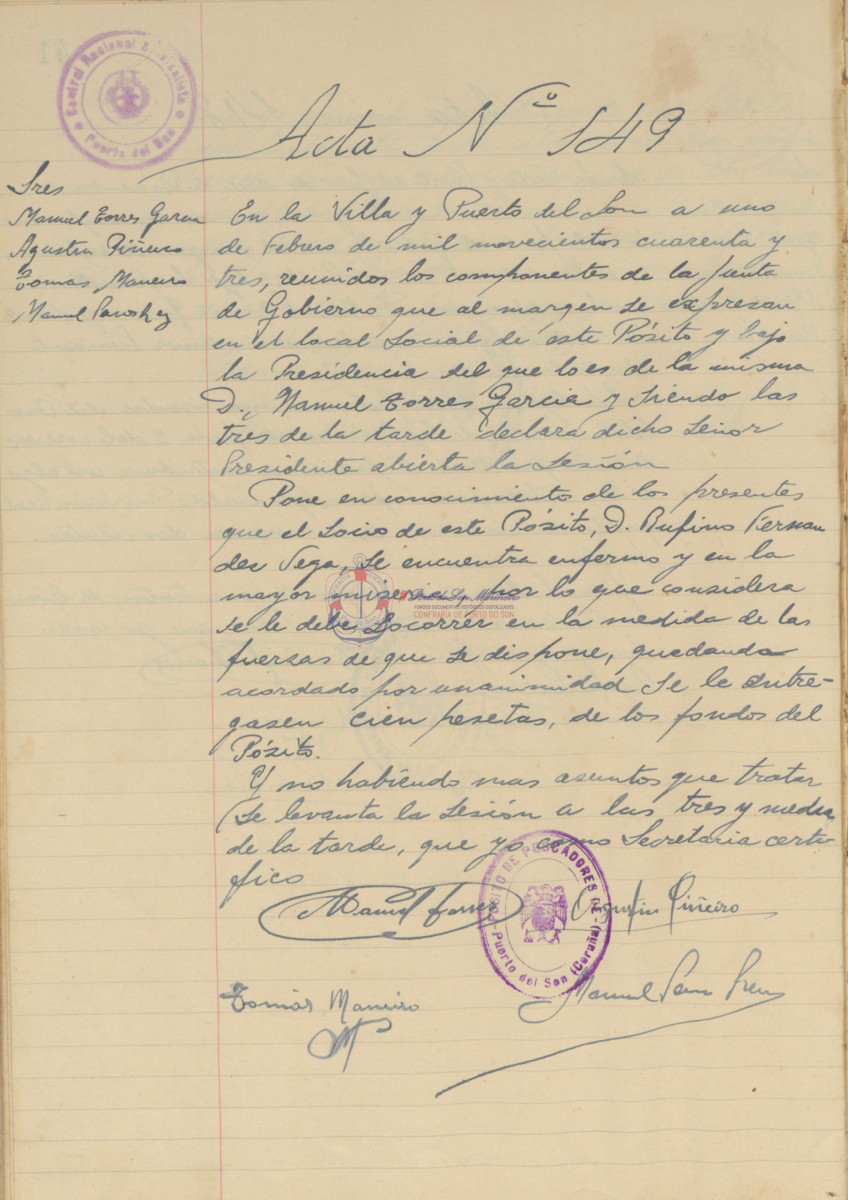 Central Nacional Sindicalista
Puerto del Son
Acta Nº 149
Sres
Manuel Torres Garcia
Agustin Piñeiro
Tomas Maneiro
Manuel
En la Villa y Puerto del Son a uno
de Febrero de mil movecientos cuarenta y
tres, reunidos los componentes de la Junta
de Gobierno que al margen se expresan
en el local Social de este Pósito y bajo
la Presidencia del que lo es de la misma
D., Manuel Torres Garcia y siendo las
tres de la tarde declara dicho Señor
Presidente abierta la Sesión
Pone en conocimiento de los presentes
que el Socio de este Pósito, D. Rufino Fernan
dez Vega, se encuentra enfermo y en la
mayor miseria por lo que considera
se le debe Socorrer en la medida de las
fuerzas de que se dispone, quedando
acordado por unanimidad Se le entre-
gasen cien pesetas, de los fondos del
Pósito.
Y no habiendo mas asuntos que tratar
se levanta la Sesión a las tres y media
de la tarde, que yo como Secretaria certi-
fico
Manuel Torres
Agustin Piñeiro
POSITO DE PESCADORES DE
Puerto del Son (Coruña)
Tomás Maneiro
Manuel
FONDOS DOCUMENTAIS HISTÓRICOS DIXITALIZADOS
CONFRARÍA DE PORTO DO SON